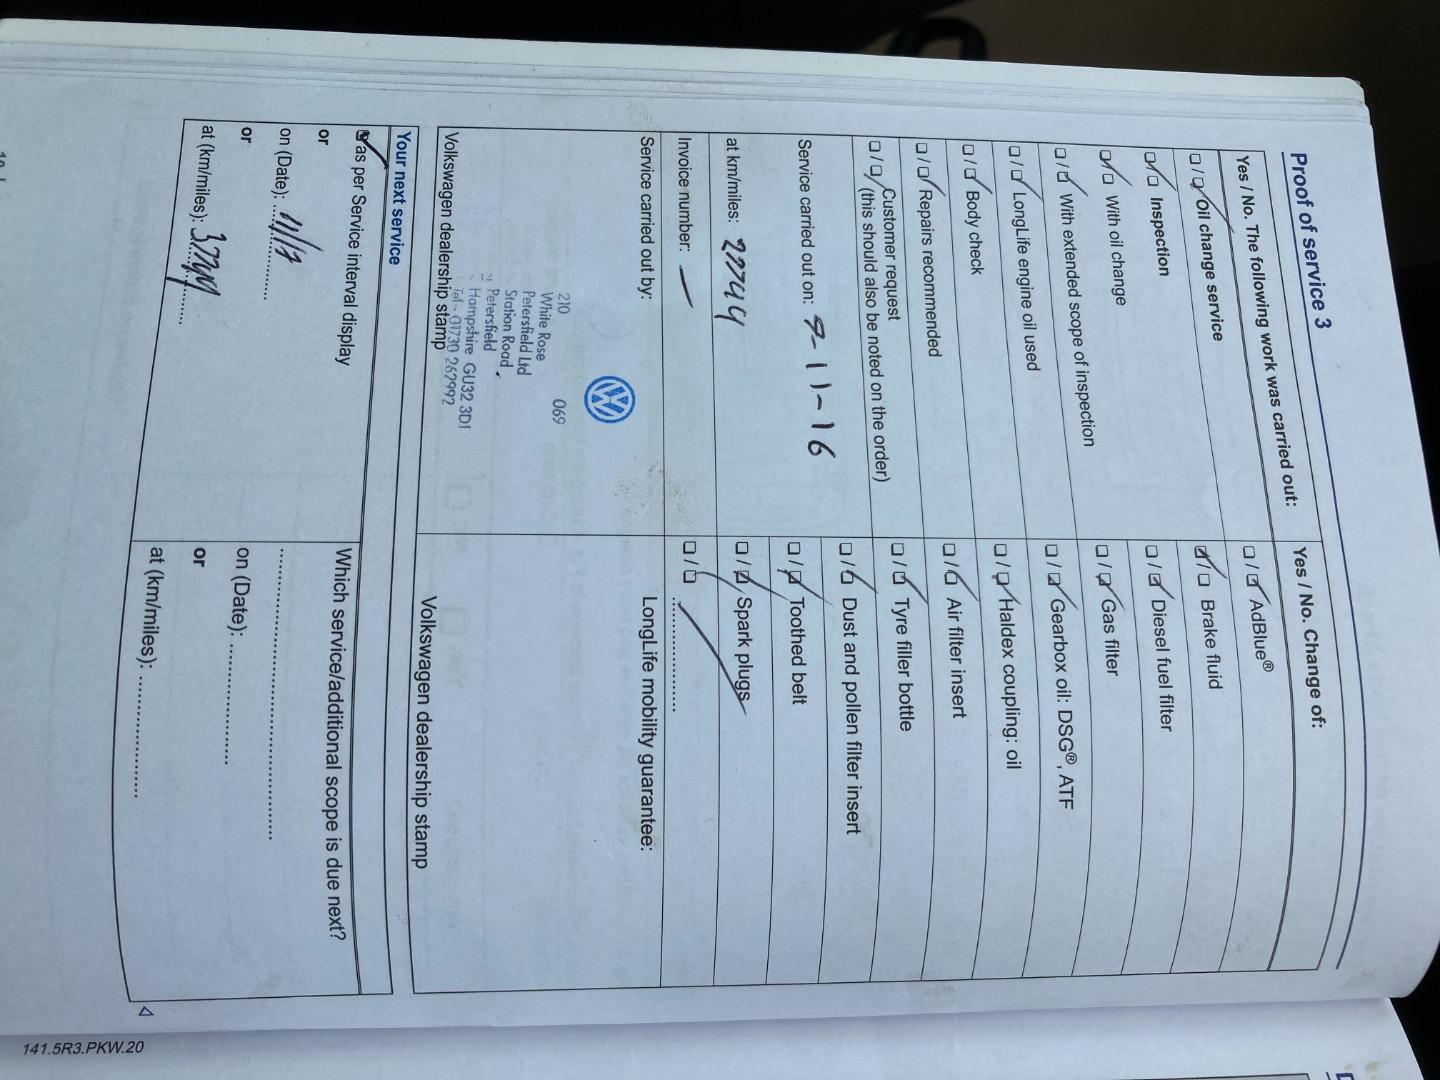 Proof of service 3
Yes / No. The following work was carried out:
☐ / ☑ Oil change service
☑ / ☐ Inspection
☑ / ☐ With oil change
☐ / ☑ With extended scope of inspection
☐ / ☑ LongLife engine oil used
☐ / ☑ Body check
☐ / ☑ Repairs recommended
☐ / ☑ Customer request
(this should also be noted on the order)
Service carried out on: 9-11-16
at km/miles: 27744
Invoice number: —
Service carried out by:
210 069
White Rose
Petersfield Ltd
Station Road,
Petersfield
Hampshire GU32 3DT
Tel - 01730 262992
Volkswagen dealership stamp
Yes / No. Change of:
☐ / ☑ AdBlue®
☑ / ☐ Brake fluid
☐ / ☑ Diesel fuel filter
☐ / ☑ Gas filter
☐ / ☑ Gearbox oil: DSG®, ATF
☐ / ☑ Haldex coupling: oil
☐ / ☑ Air filter insert
☐ / ☑ Tyre filler bottle
☐ / ☑ Dust and pollen filter insert
☐ / ☑ Toothed belt
☐ / ☑ Spark plugs
☐ / ☑ ..............
LongLife mobility guarantee:
Volkswagen dealership stamp
Your next service
☑ as per Service interval display
or
on (Date): 11/17
or
at (km/miles): 37744
Which service/additional scope is due next?
..............
on (Date): ..............
or
at (km/miles): ..............
141.5R3.PKW.20